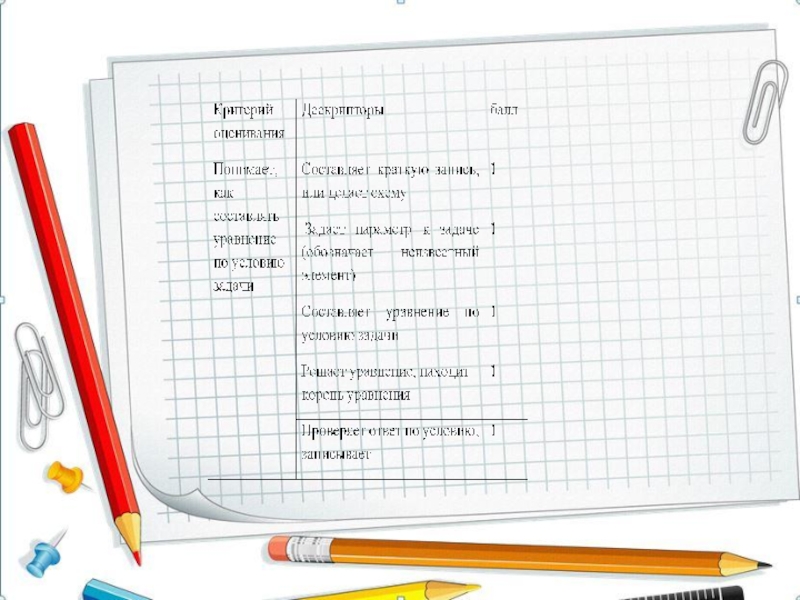 Критерий
оценивания
Дескрипторы
балл
Понимает,
как
составлять
уравнение
по условию
задачи
Составляет краткую запись, 1
или делает схему
Задает параметр к задаче 1
(обозначает неизвестный
элемент)
Составляет уравнение по 1
условию задачи
Решает уравнение, находит 1
корень уравнения
Проверяет ответ по условию, 1
записывает